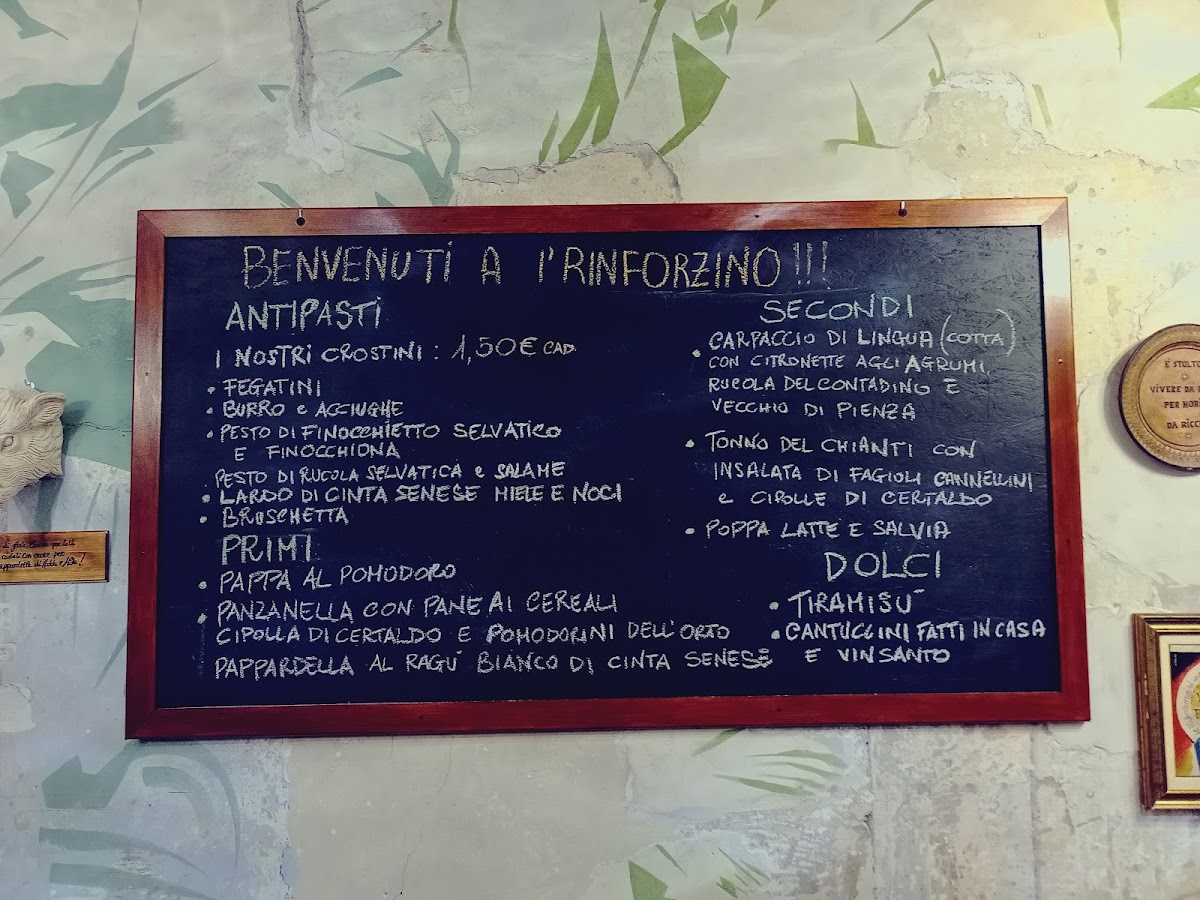 BENVENUTI A I'RINFORZINO!!!
ANTIPASTI
I NOSTRI CROSTINI : 1,50€ CAD.
• FEGATINI
• BURRO e ACCIUGHE
• PESTO DI FINOCCHIETTO SELVATICO
E FINOCCHIONA
PESTO DI RUCOLA SELVATICA e SALAME
• LARDO DI CINTA SENESE MIELE E NOCI
• BRUSCHETTA
PRIMI
• PAPPA AL POMODORO
• PANZANELLA CON PANE AI CEREALI
CIPOLLA DI CERTALDO E POMODORINI DELL'ORTO
PAPPARDELLA AL RAGÙ BIANCO DI CINTA SENESE
SECONDI
• CARPACCIO DI LINGUA (COTTA)
CON CITRONETTE AGLI AGRUMI,
RUCOLA DEL CONTADINO E
VECCHIO DI PIENZA
• TONNO DEL CHIANTI CON
INSALATA DI FAGIOLI CANNELLINI
e CIPOLLE DI CERTALDO
• POPPA LATTE E SALVIA
DOLCI
• TIRAMISU'
• CANTUCCINI FATTI IN CASA
E VINSANTO
È STOLTO
VIVERE DA
PER
DA